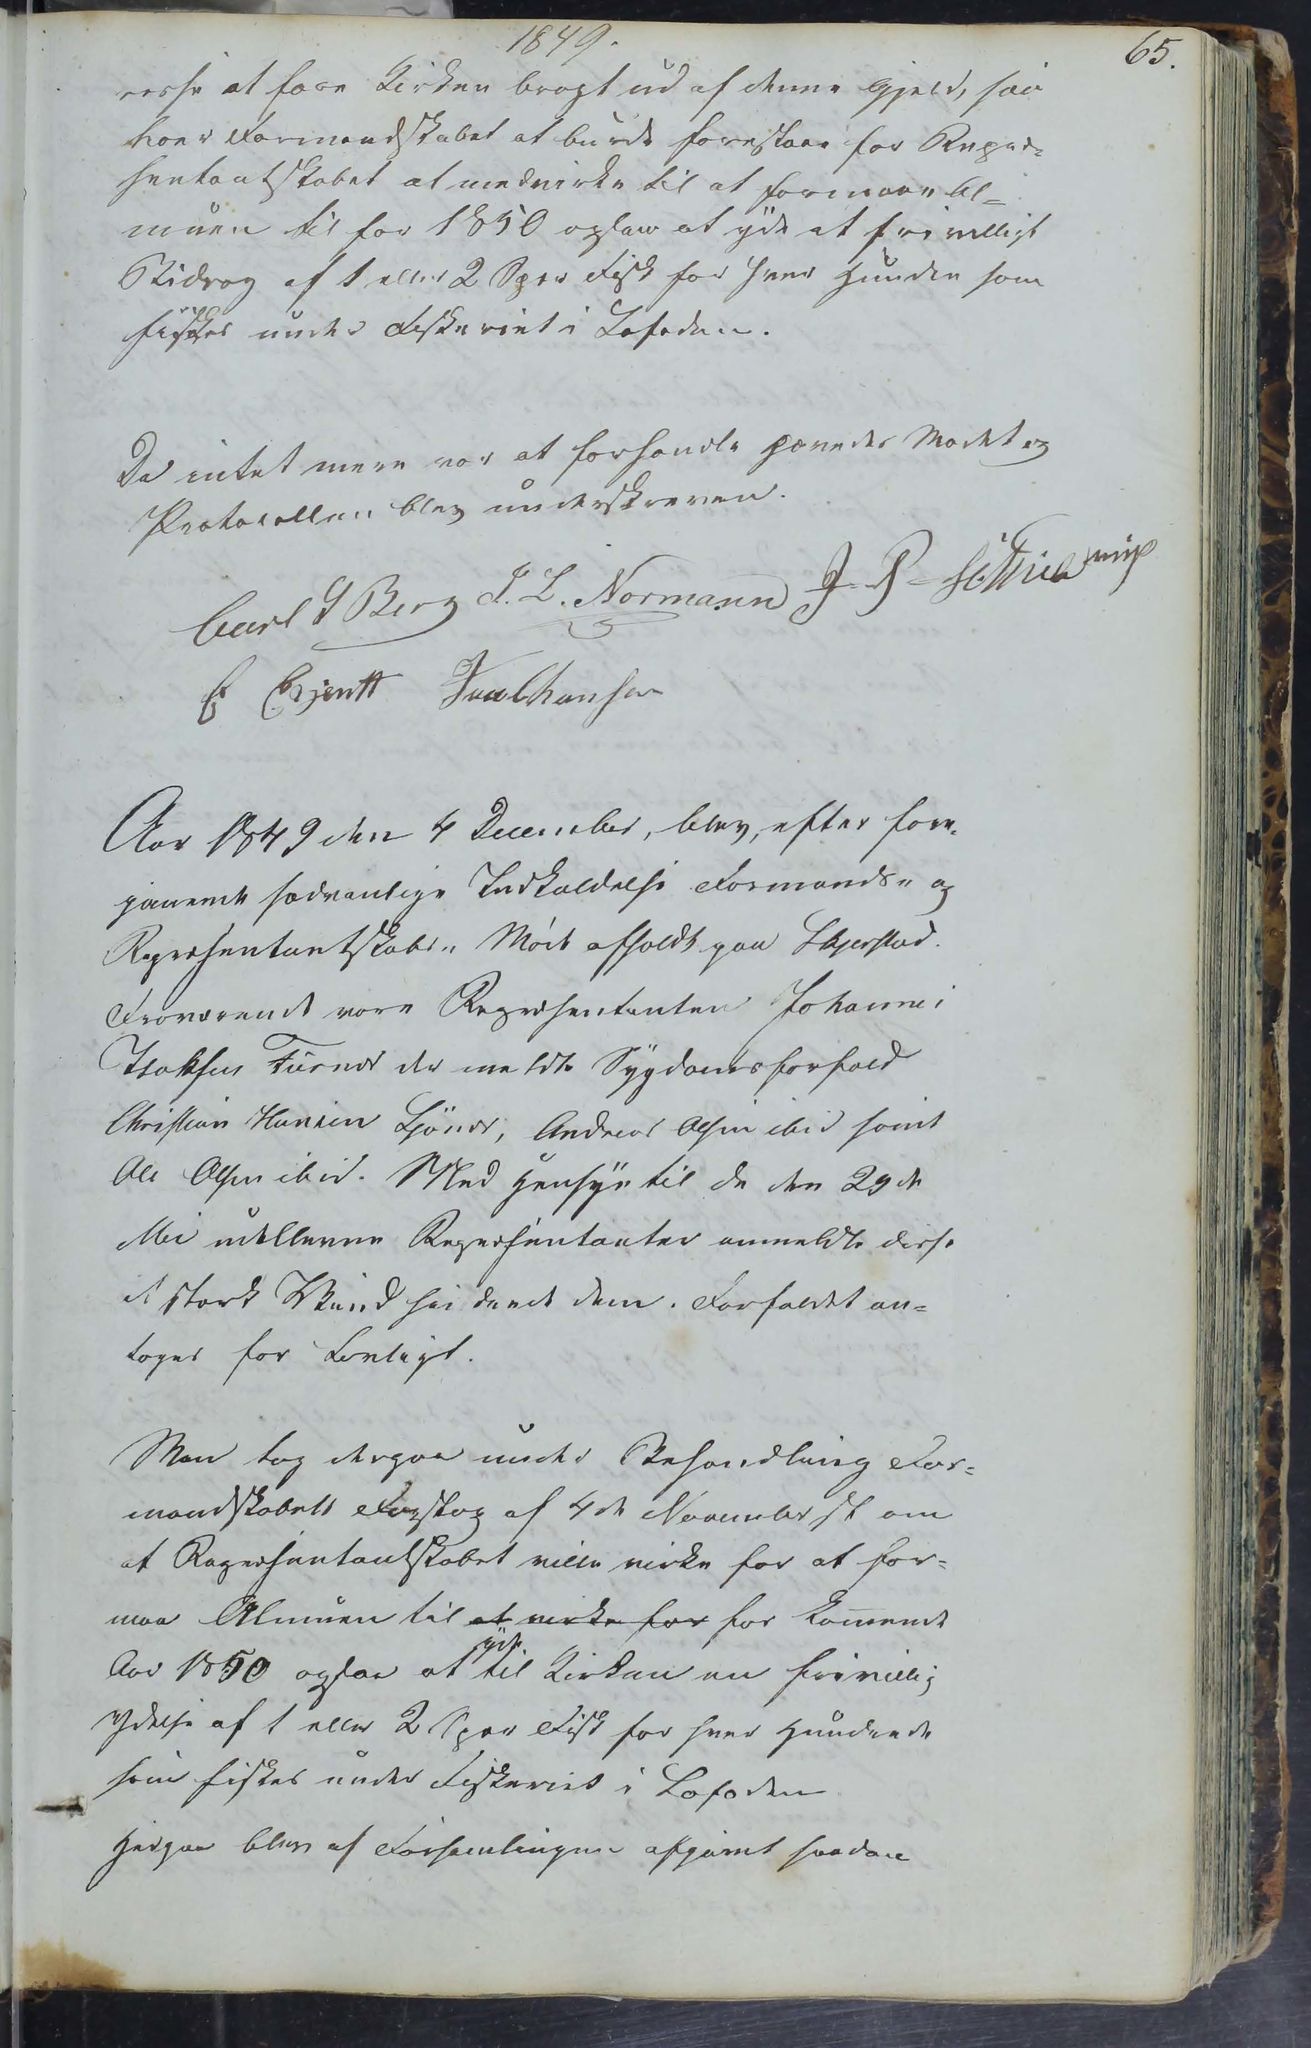 1849.
65.
resse at faae Kirken bragt ud af denne Gjeld, saa
troer Formandskabet at burde foreslaae for Repræ-
sentantskabet at medvirke til at formaae Al-
muen til for 1850 ogsaa at yde et frivilligt
Bidrag af 1 eller 2 Spær Fisk for hver Hundre som
fiskes under Fiskeriet i Lofoden.
Da intet mere var at forhandle hævedes Mødet og
Protocollen blev underskreven.
Carl S Berg J. L. Normann J. P.
E Evjenth Paul Hansen
Aar 1849 den 4 December, blev, efter fore-
gaaende sædvanlige Indkaldelse Formands- og
Repræsentantskabs- Møde afholdt paa Skjerstad.
Fraværende vare Repræsentanten Johannes
Isaksen Furnes der meldte Sygdomsforfald
Christian Hansen Ljønes, Andreas Olsen ibid samt
Ole Olsen ibid. Med Hensyn til de den 29de
Mai udeblevne Repræsentanter anmeldte disse
at stærk Vind hindrede dem. Forfaldet an-
toges for Lovligt.
Man tog derpaa under Behandling For-
mandskabets Forslag af 4de November st om
at Repræsentantskabet ville virke for at for-
maa Almuen til at virke for for kommende
Aar 1850 ogsaa at yde til Kirken en frivillig
Ydelse af 1 eller 2 Spær Fisk for hver Hundrede
som fiskes under Fiskeriet i Lofoden
Herpaa blev af Forsamlingen afgivet saadan